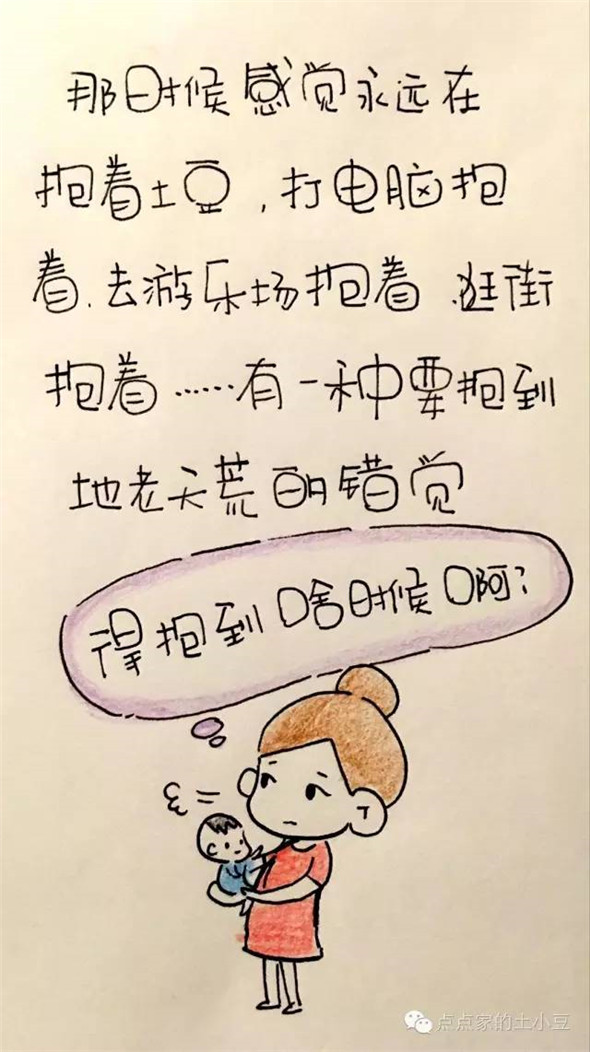 那时候感觉永远在
抱着土豆,打电脑抱
着、去游乐场抱着、逛街
抱着……有一种要抱到
地老天荒的错觉
得抱到啥时候啊?
点点家的土小豆